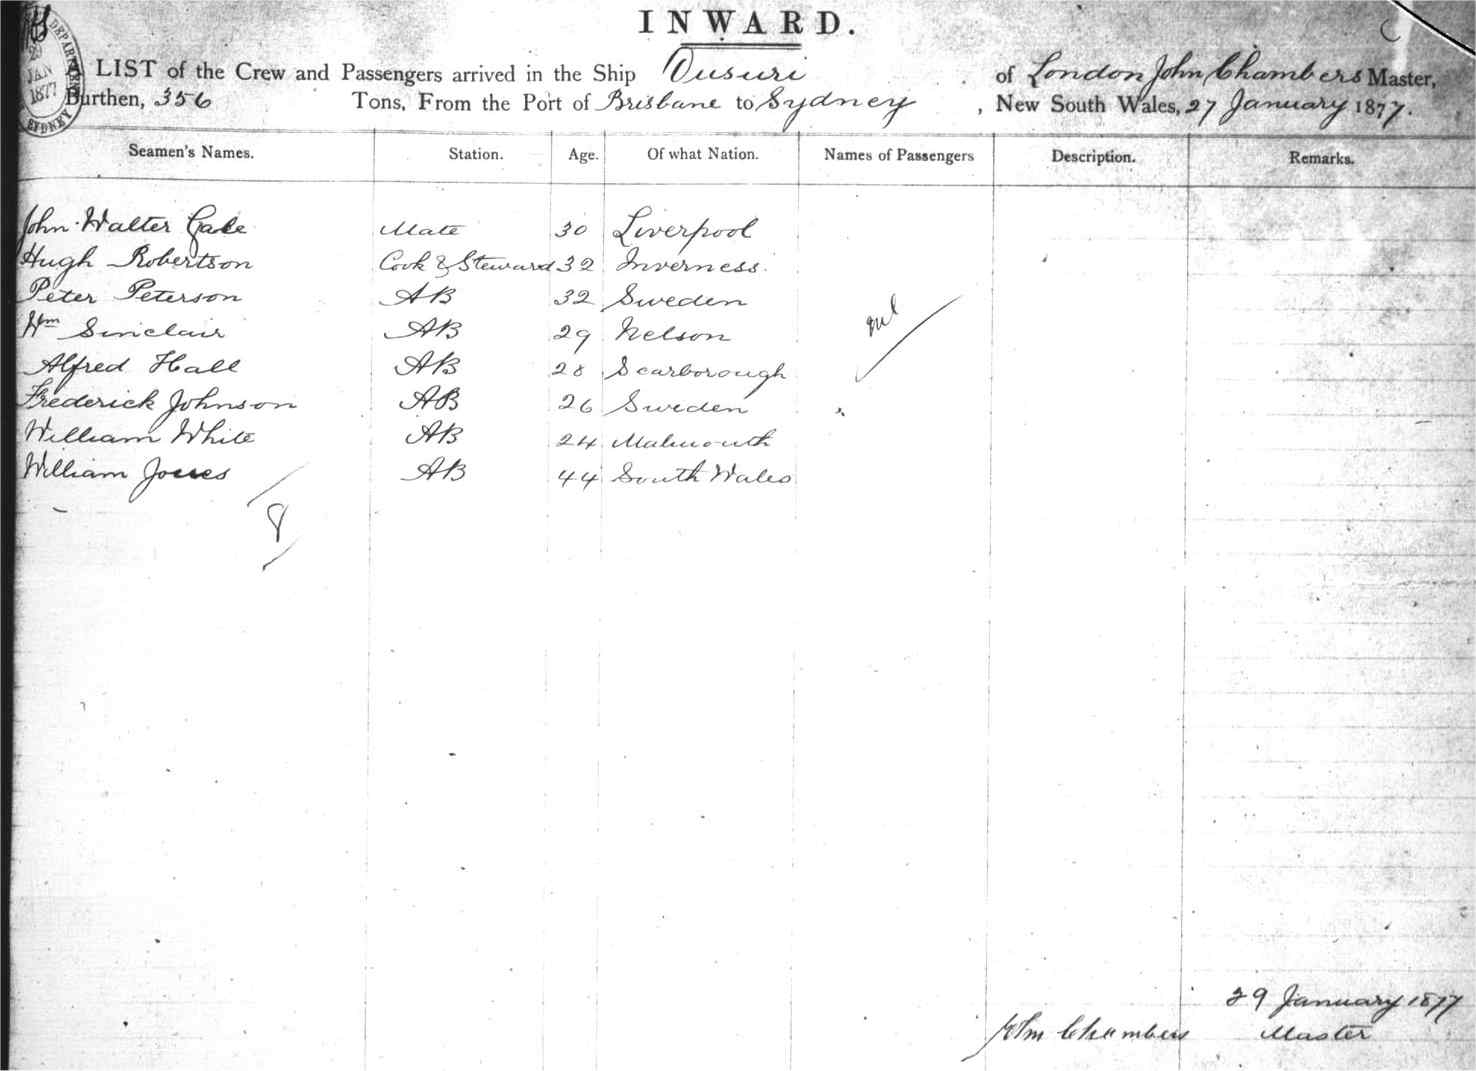 INWARD.
A LIST of the Crew and Passengers arrived in the Ship Ousuri of London John Chambers Master,
Burthen, 356 Tons, From the Port of Brisbane to Sydney, New South Wales, 27 January 1877.
DEPAR
JAN
1877
SYDNEY
Seamen's Names. Station. Age. Of what Nation. Names of Passengers Description. Remarks.
John Walter Gale Mate 30 Liverpool
Hugh Robertson Cook & Steward 32 Inverness
Peter Peterson AB 32 Sweden
Wm Sinclair AB 29 Nelson nil
Alfred Hall AB 28 Scarborough
Frederick Johnson AB 26 Sweden
William White AB 24
William Jones AB 44 South Wales
8
29 January 1877
John Chambers Master